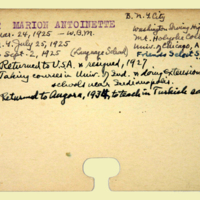 MARION ANTOINETTE B. N.Y. City
Mar. 24, 1925 – W.B.M. Washington Irving High
July 25, 1925 Mt. Holyoke Col
Sept. 2, 1925 (Language School) Univ. of Chicago, A
Friends Select S
Returned to U.S.A. & resigned, 1927
Taking courses in Univ. of Ind. & doing Extension
schools near Indianapolis.
Returned to Angora, 1934, to teach in Turkish